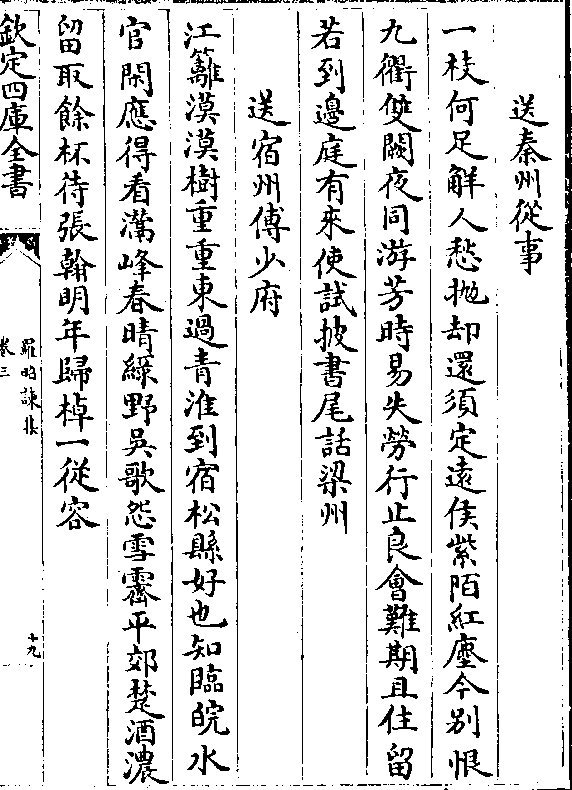 送秦州從事
一枝何足解人愁抛却還須定遠侯紫陌紅塵今别恨
九衢雙闕夜同游芳時易失勞行止良會難期且住留
若到邊庭有來使試披書尾話梁州
送宿州傅少府
江蘺漠漠樹重重東過青淮到宿松縣好也知臨皖水
官閑應得看灊峰春晴綠野吳歌怨雪霽平郊楚酒濃
留取餘杯待張翰明年歸棹一從容
欽定四庫全書
羅昭諫集
卷三
十九